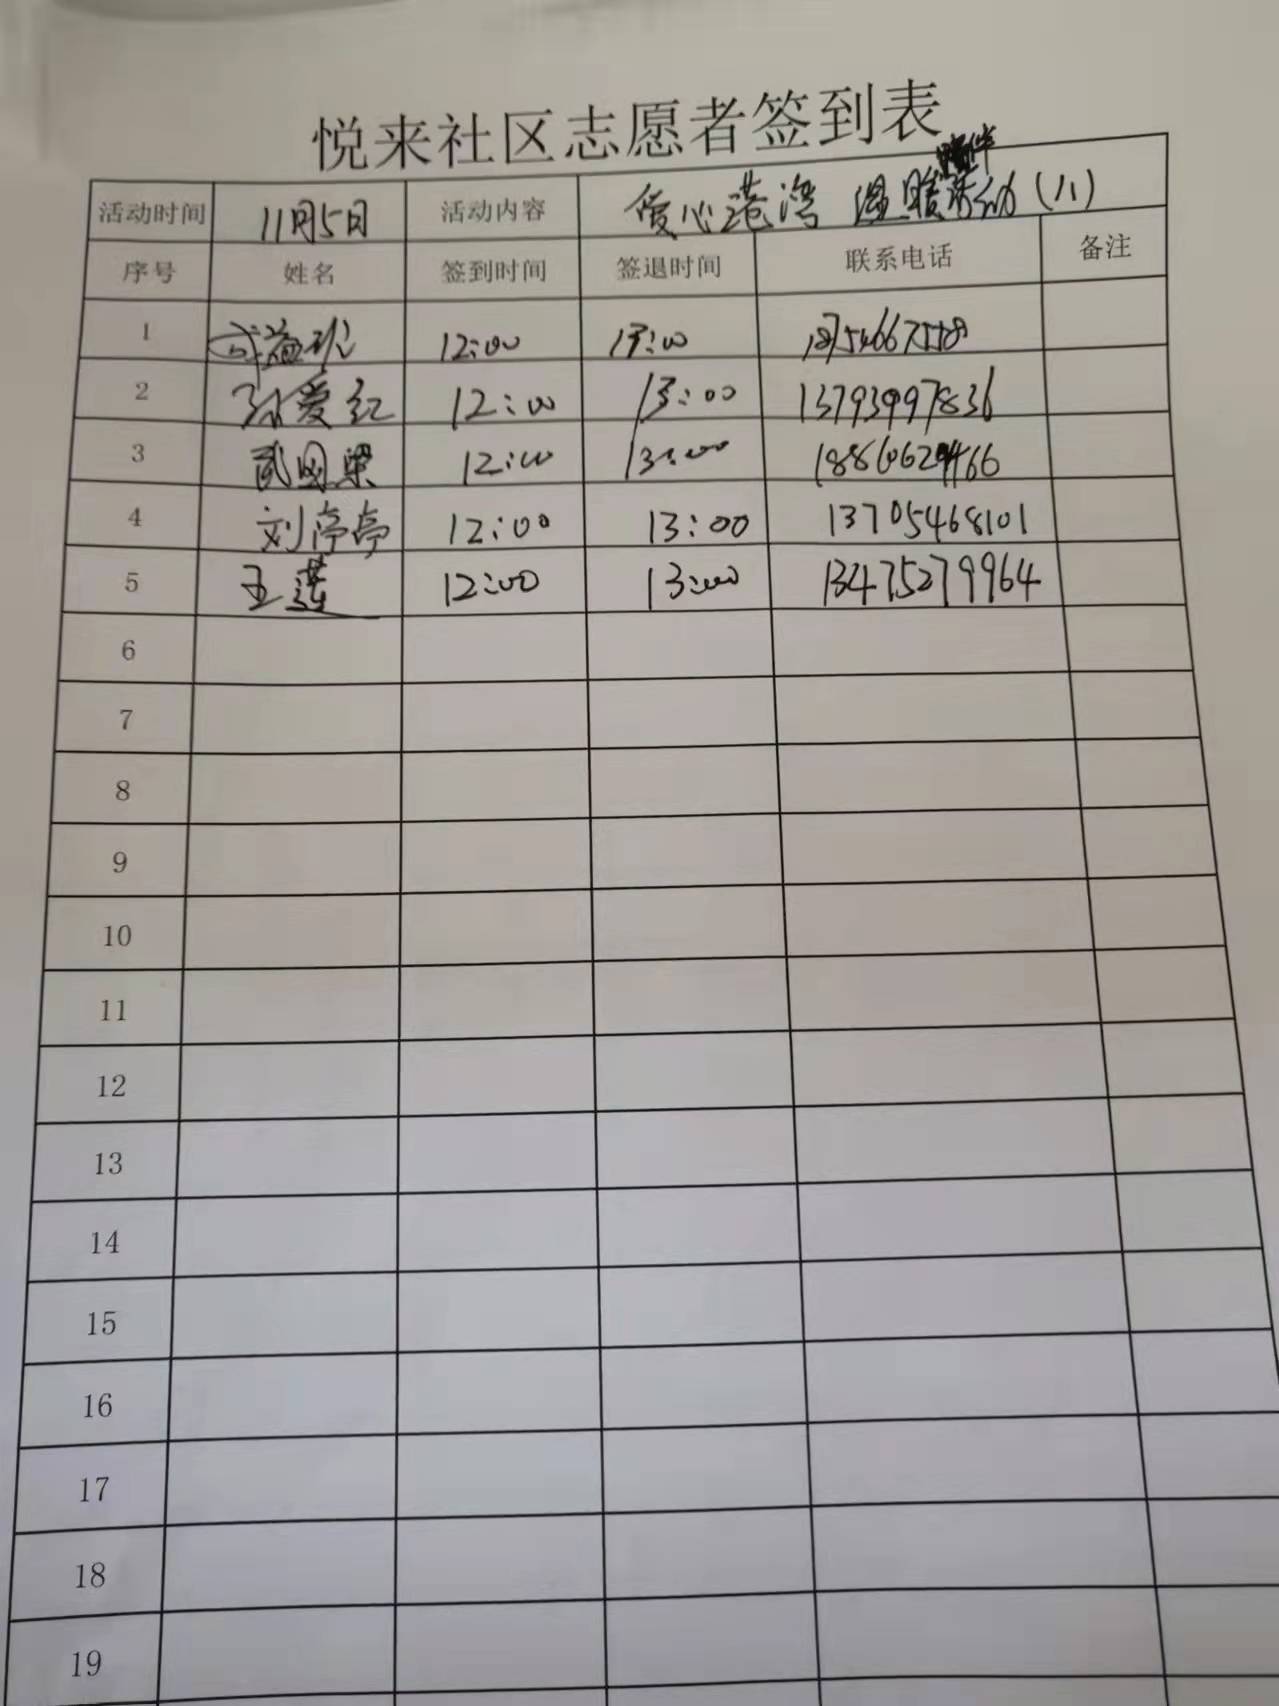 悦来社区志愿者签到表
活动时间 11月5日 活动内容 爱心港湾 温暖陪伴活动(八)
序号 姓名 签到时间 签退时间 联系电话 备注
1 12:00 13:00
2 孙爱红 12:00 13:00 13793997836
3 武国梁 12:00 13:00
4 刘亭亭 12:00 13:00 13705468101
5 王莲 12:00 13:00 13475279964
6
7
8
9
10
11
12
13
14
15
16
17
18
19